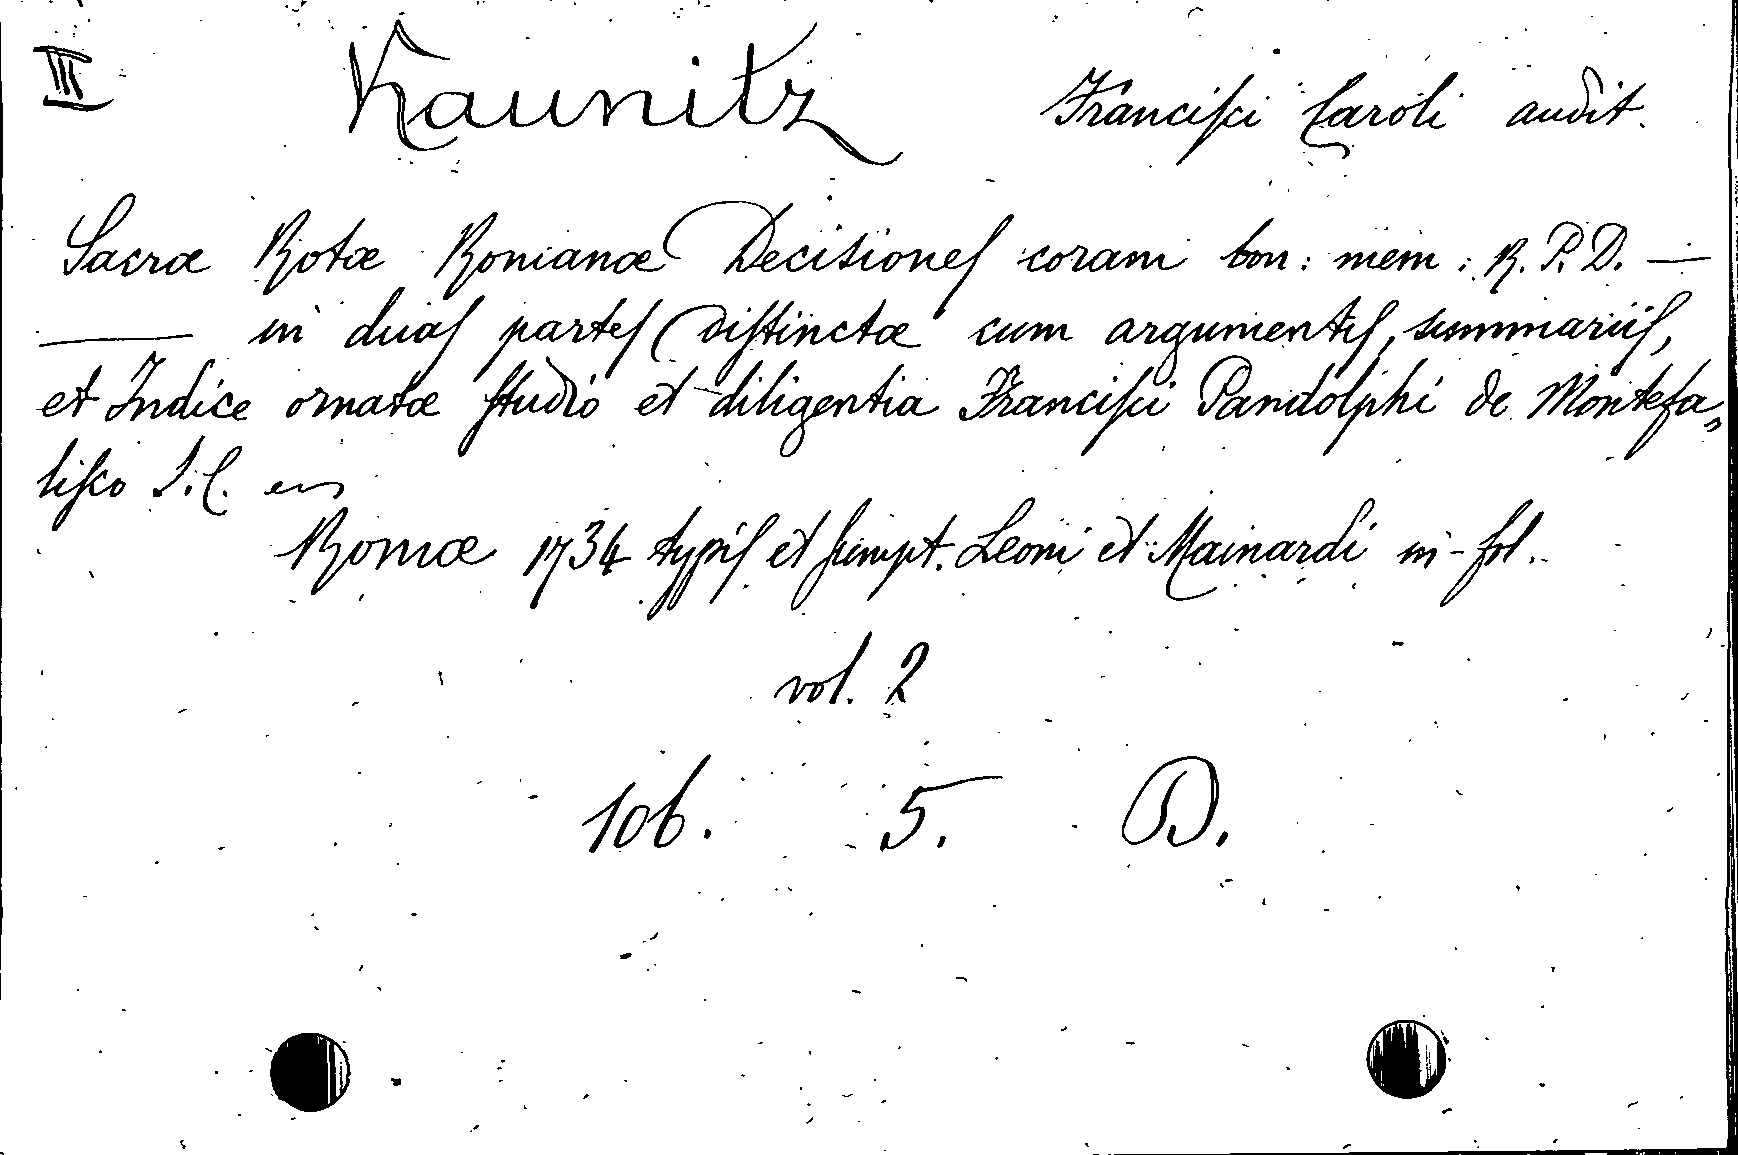 III Kaunitz Francisci Caroli audit.
Sacræ Rotæ Romanæ Decisiones coram bon: mem: R. P. D. —
— in duas partes distinctæ cum argumentis, summariis,
et Indice ornatæ studio et diligentia Francisci Pandolphi de Montefa„
lisco I. C.
Romæ 1734 typis et sumpt. Leoni et Mainardi in-fol.
vol. 2
106. 5. D.